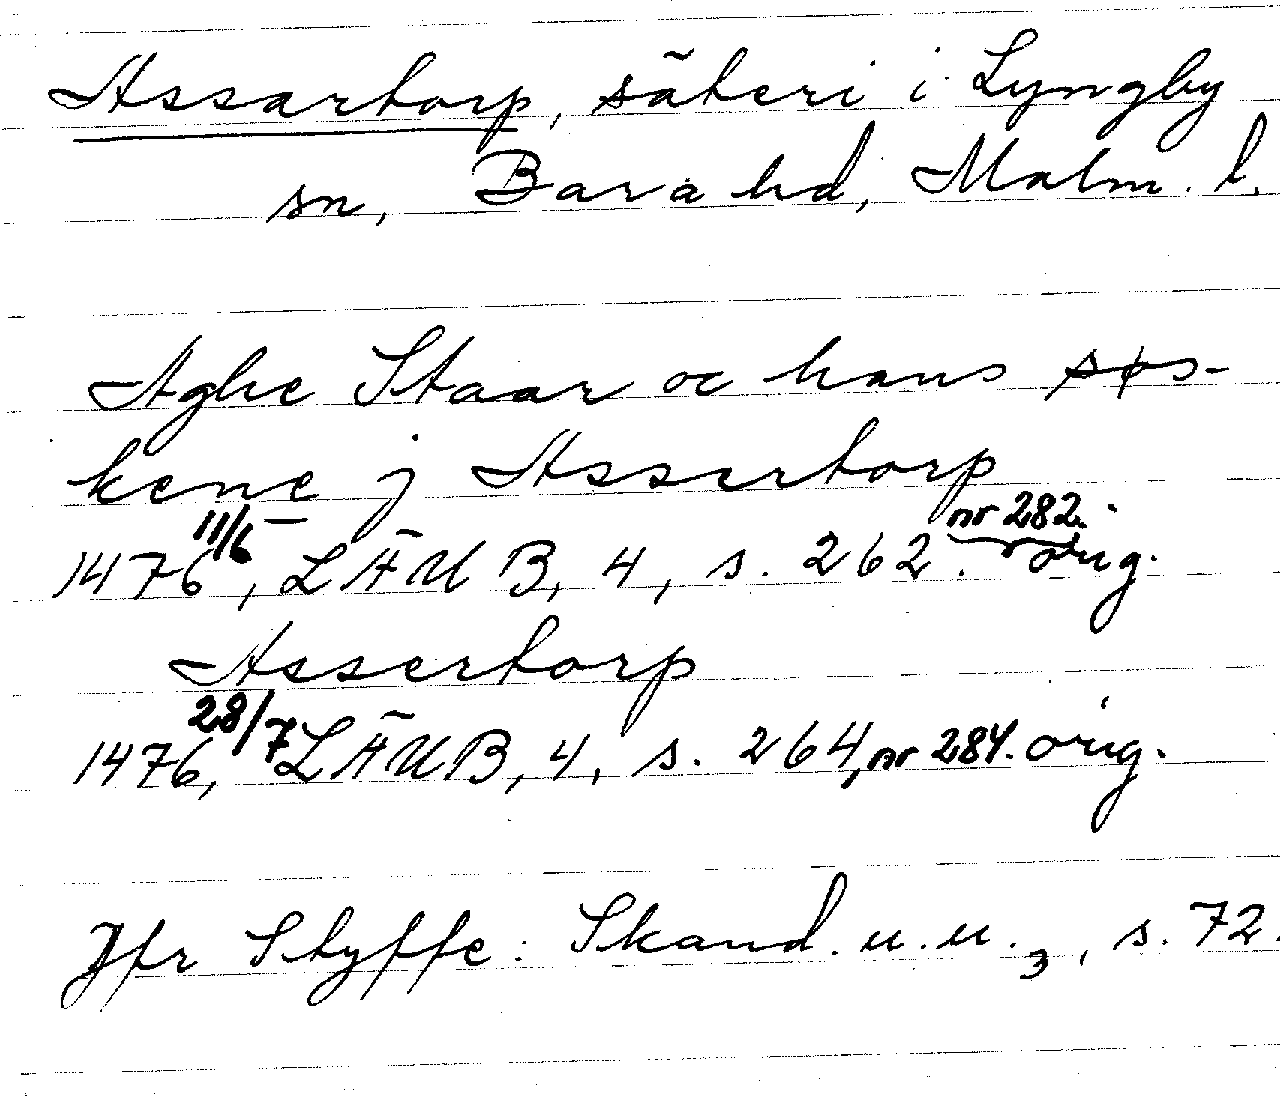 Assartorp, säteri i Lyngby
sn, Bara hd, Malm. l.
Aghe Staar oc hans søs-
kene j Assertorp
1476 11/6, LÄUB, 4, s. 262. nr 282. orig.
Assertorp
1476, 28/7 LÄUB, 4, s. 264, nr 284. orig.
Jfr Styffe: Skand. u. u. 3, s. 72.